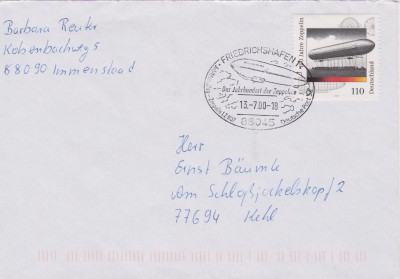 Barbara Reuter
88090 Immenstaad
FRIEDRICHSHAFEN
Das Jahrhundert der Zeppeline
13.-7.00-18
88045
Deutsche Post
Jahre Zeppelin
Deutschland
110
Herr
Ernst Bäumle
Am Schloßjockelskopf 2
77694 Kehl